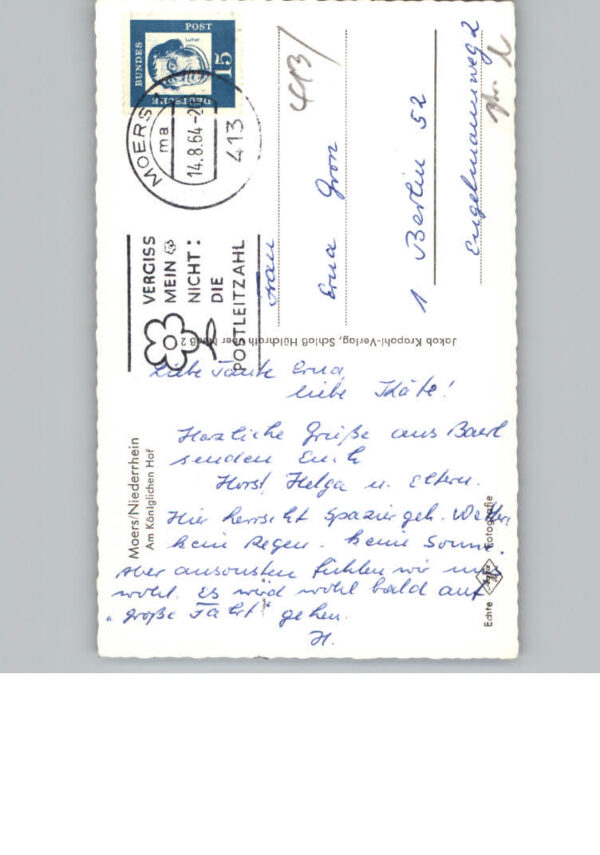 Liebe Tante Erna,
liebe Käte!
Herzliche Grüße aus Baerl
senden Euch
Horst, Helga u. Eltern.
Hier herrscht Spaziergeh. Wetter,
kein Regen. keine Sonne.
Aber ansonsten fühlen wir uns
wohl. Es wird wohl bald auf
"große Fahrt" gehen.
H.
Frau
Erna
1 Berlin 52
Engelmannweg 2
413/
BUNDES
POST
DEUTSCHE
Luther
15
MOERS
ma
14.8.64
413
VERGISS
MEIN
NICHT:
DIE
POSTLEITZAHL
Moers/Niederrhein
Am Königlichen Hof
Jakob Kropohl-Verlag, Schloß Hülchrath über Neuß 2
Echte Fotografie